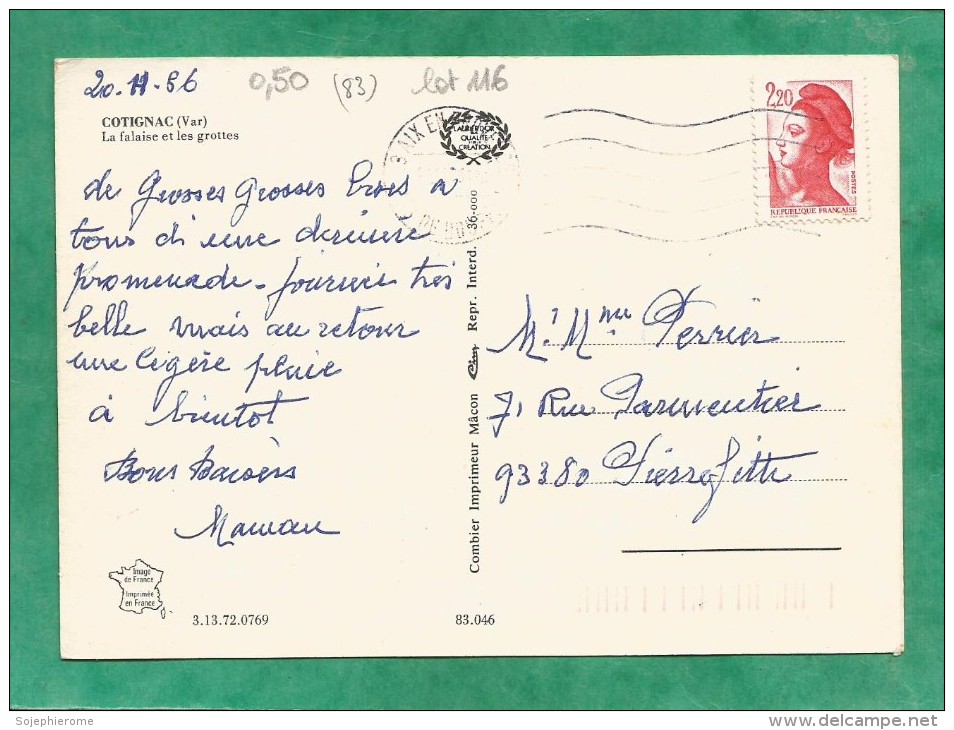 20-11-86
0,50 (83) lot 116
COTIGNAC (Var)
La falaise et les grottes
de Grosses Grosses bises à
tous d'une dernière
promenade. Journée très
belle mais au retour
une légère pluie
à bientôt
Bons Baisers
Maman
Image
de France
Imprimée
en France
3.13.72.0769
83.046
Combier Imprimeur Mâcon Cim Repr. Interd. 36-000
AIX EN
LAURIER D'OR
DE LA
QUALITÉ
CRÉATION
2,20
POSTES
REPUBLIQUE FRANÇAISE
M. Mme Perrier
71 Rue Parmentier
93380 Pierrefitte
Sojephierome
www.delcampe.net